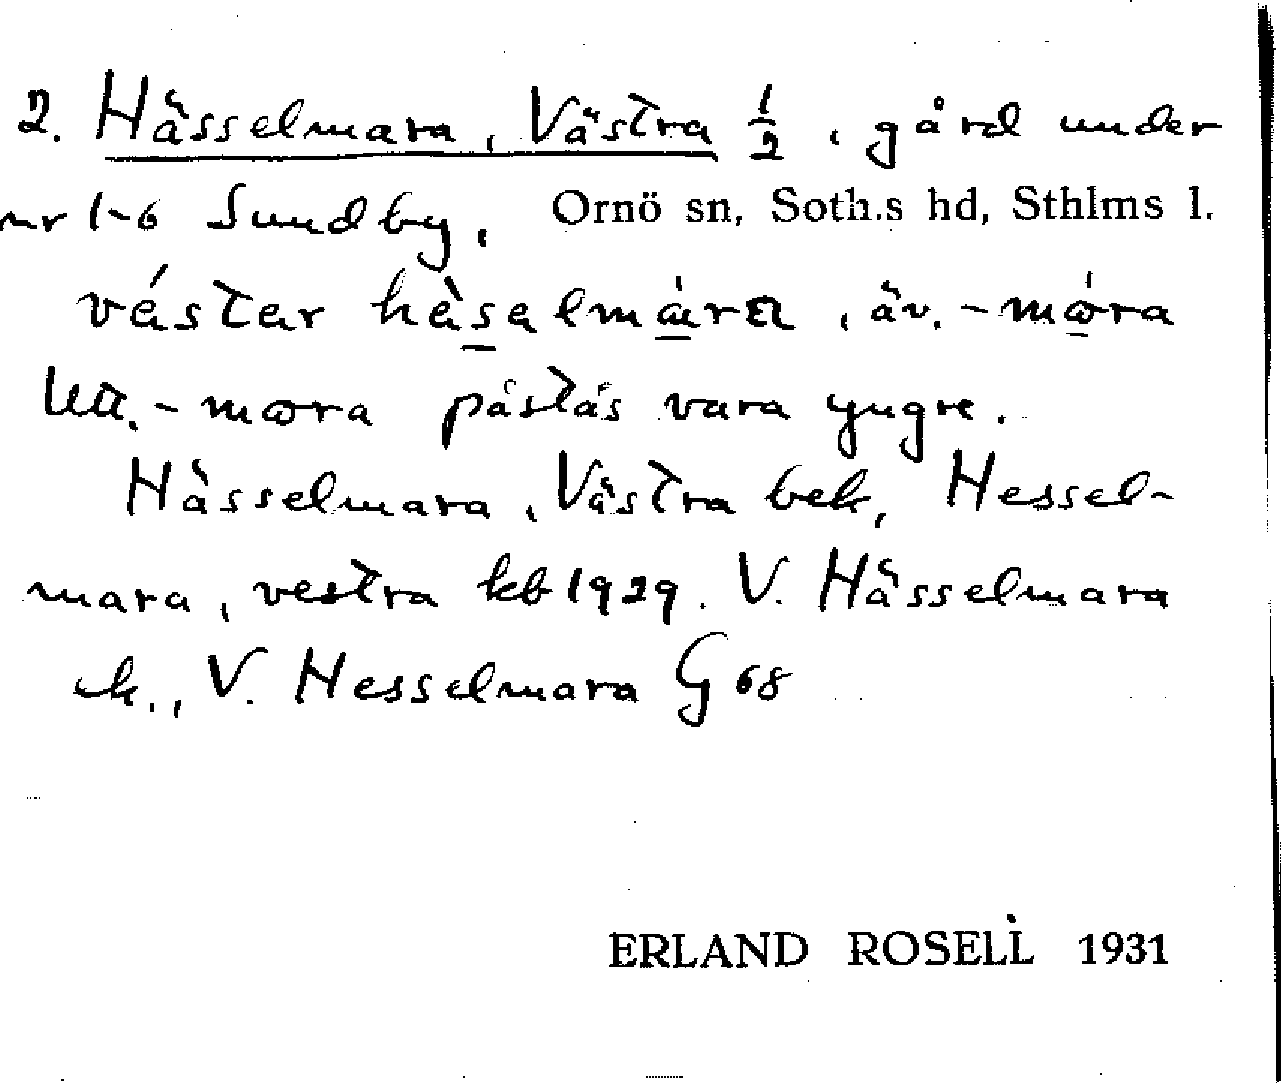 2. Hässelmara, Västra 1/2, gård under
nr 1-6 Sundby, Ornö sn, Soth.s hd, Sthlms l.
véstar hèsəlmȧra, äv. -mɷ́ra
Utt. -mɷra påstås vara yngre.
Hässelmara, Västra bek, Hessel-
mara, vestra kb 1929. V. Hässelmara
ek., V. Hesselmara G 68
ERLAND ROSELL 1931